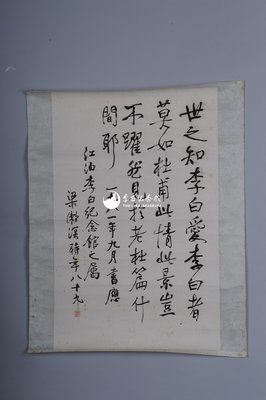 世之知李白爱李白者
莫如杜甫此情此景岂
不跃然见于老杜篇什
间耶 一九八一年九月书应
江油李白纪念馆之属
梁漱溟時年八十九